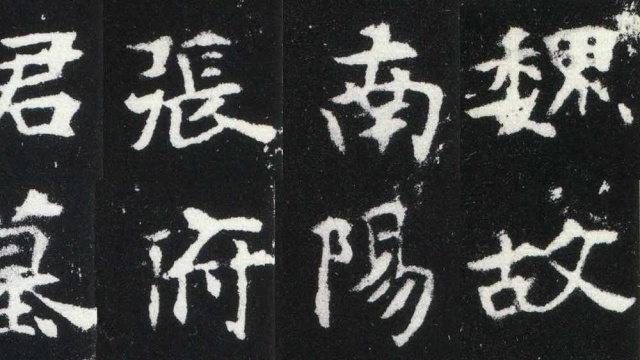 魏故
南陽
張府
君墓